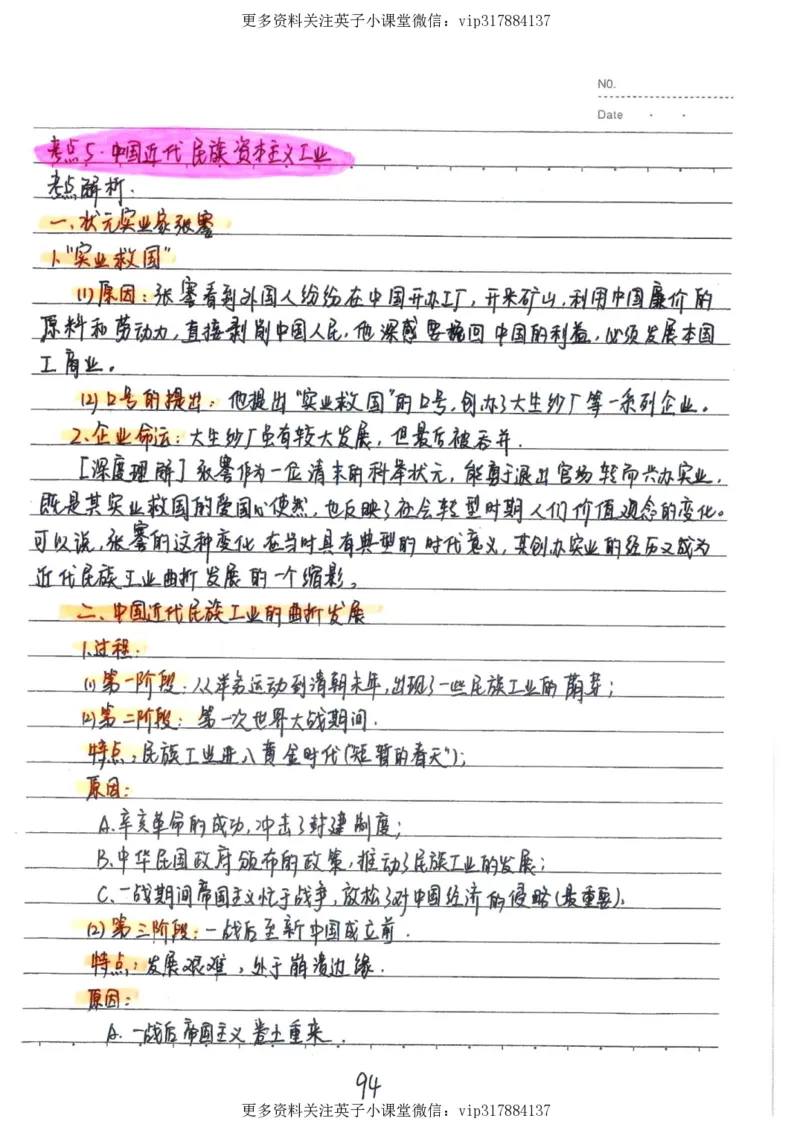 更多资料关注英子小课堂微信：vip317884137
NO.
Date
考点5·中国近代民族资本主义工业
考点解析.
一、状元实业家张謇
1."实业救国"
(1)原因：张謇看到外国人纷纷在中国开办工厂,开采矿山,利用中国廉价的
原料和劳动力,直接剥削中国人民,他深感要挽回中国的利益,必须发展本国
工商业。
(2)口号的提出：他提出"实业救国"的口号,创办了大生纱厂等一系列企业。
2、企业命运：大生纱厂虽有较大发展,但最后被吞并.
[深度理解]张謇作为一位清末的科举状元,能勇于退出官场转而兴办实业,
既是其实业救国的爱国心使然,也反映了社会转型时期人们价值观念的变化。
可以说,张謇的这种变化在当时具有典型的时代意义,其创办实业的经历又成为
近代民族工业曲折发展的一个缩影。
二、中国近代民族工业的曲折发展
1.过程：
(1)第一阶段：从洋务运动到清朝末年,出现了一些民族工业的萌芽；
(2)第二阶段：第一次世界大战期间.
特点：民族工业进入黄金时代("短暂的春天")；
原因：
A.辛亥革命的成功,冲击了封建制度；
B.中华民国政府颁布的政策,推动了民族工业的发展；
C.一战期间帝国主义忙于战争,放松了对中国经济的侵略(最重要).
(2)第三阶段：一战后至新中国成立前.
特点：发展艰难,处于崩溃边缘.
原因：
A.一战后帝国主义卷土重来.
94
更多资料关注英子小课堂微信：vip317884137